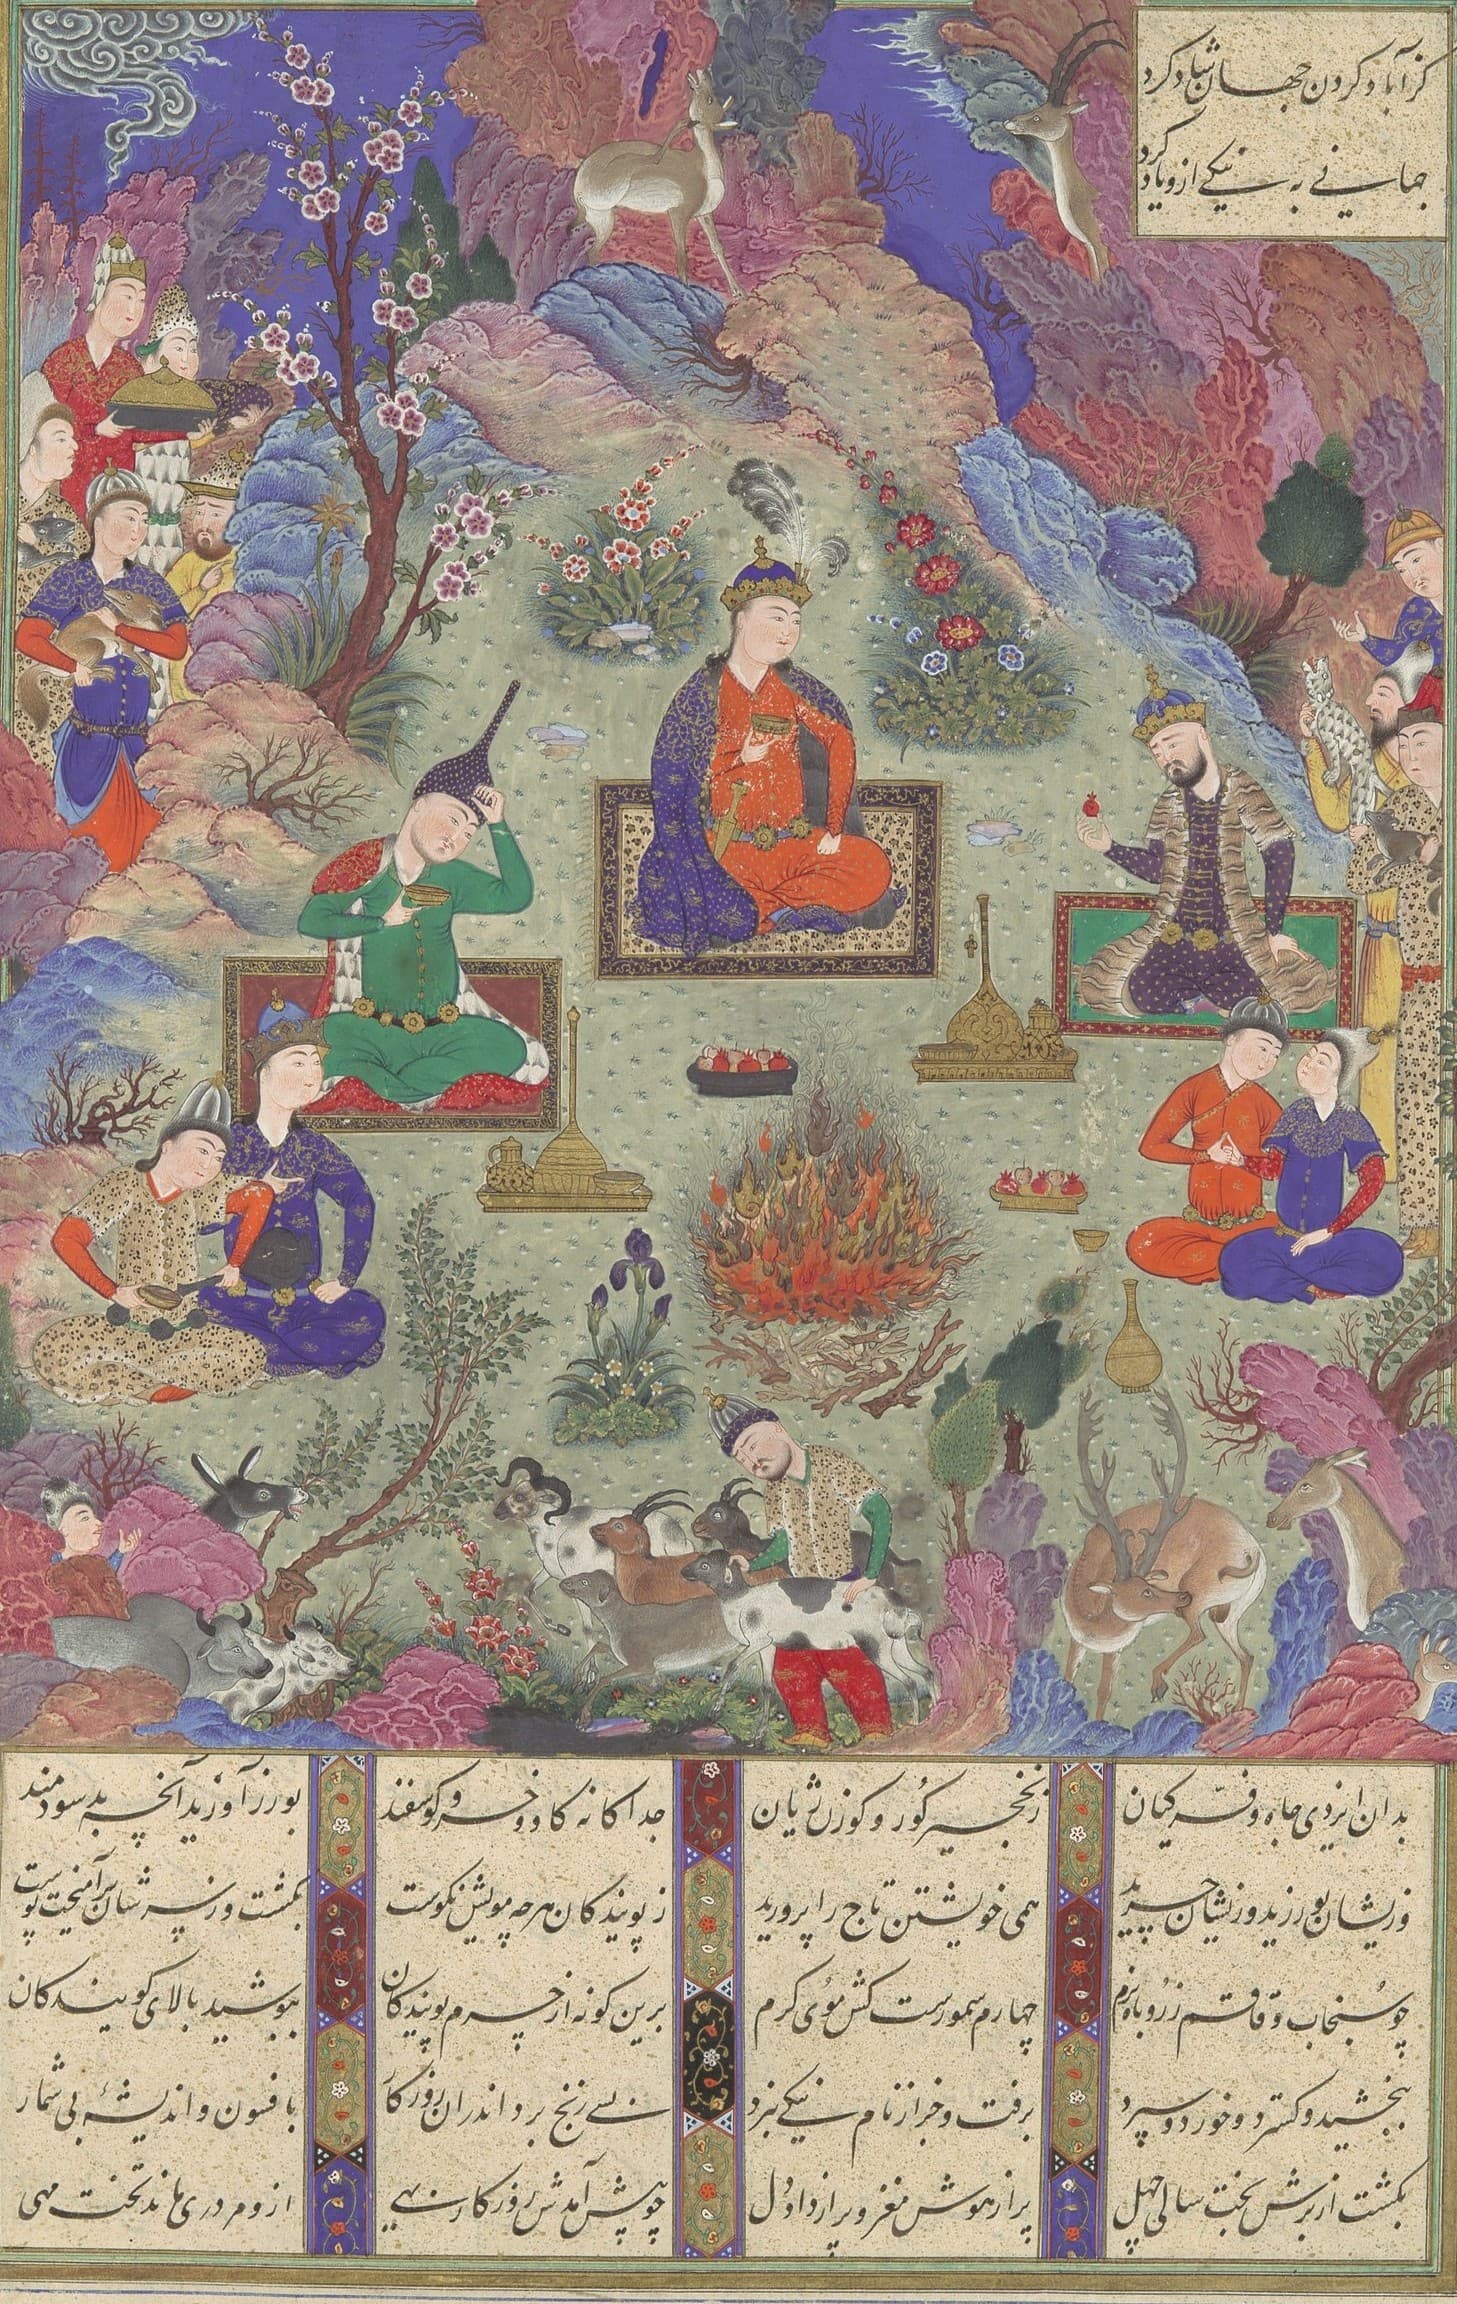 کز آباد کردن جهان شاد کرد
جهانی به نیکی ازو یاد کرد
بدان ایزدی جاه و فر کیان ز نخجیر گور و گوزن ژیان جدا گانه گاو و خر و گوسفند بورز آورید آنچه بد سودمند
وزیشان بورزید وزیشان چرید همی خویشتن تاج را پرورید ز پویندگان هرچه مویش نکوست بکشت و ز سرشان برآمیخت پوست
چو سنجاب و قاقم ز روباه نرم چهارم سمورست کش موی گرم برین گونه از چرم پویندگان بپوشید بالای گویندگان
ببخشید و گسترد و خورد و سپرد برفت و جز از نام نیکی نبرد بسی رنج برد اندران روزگار بافسون و اندیشهٔ بی شمار
بگشت از برش بخت سالی چهل پر از هوش مغز و پر از داد دل چو پیش آمدش روزگار بهی ازو مردری ماند تخت مهی